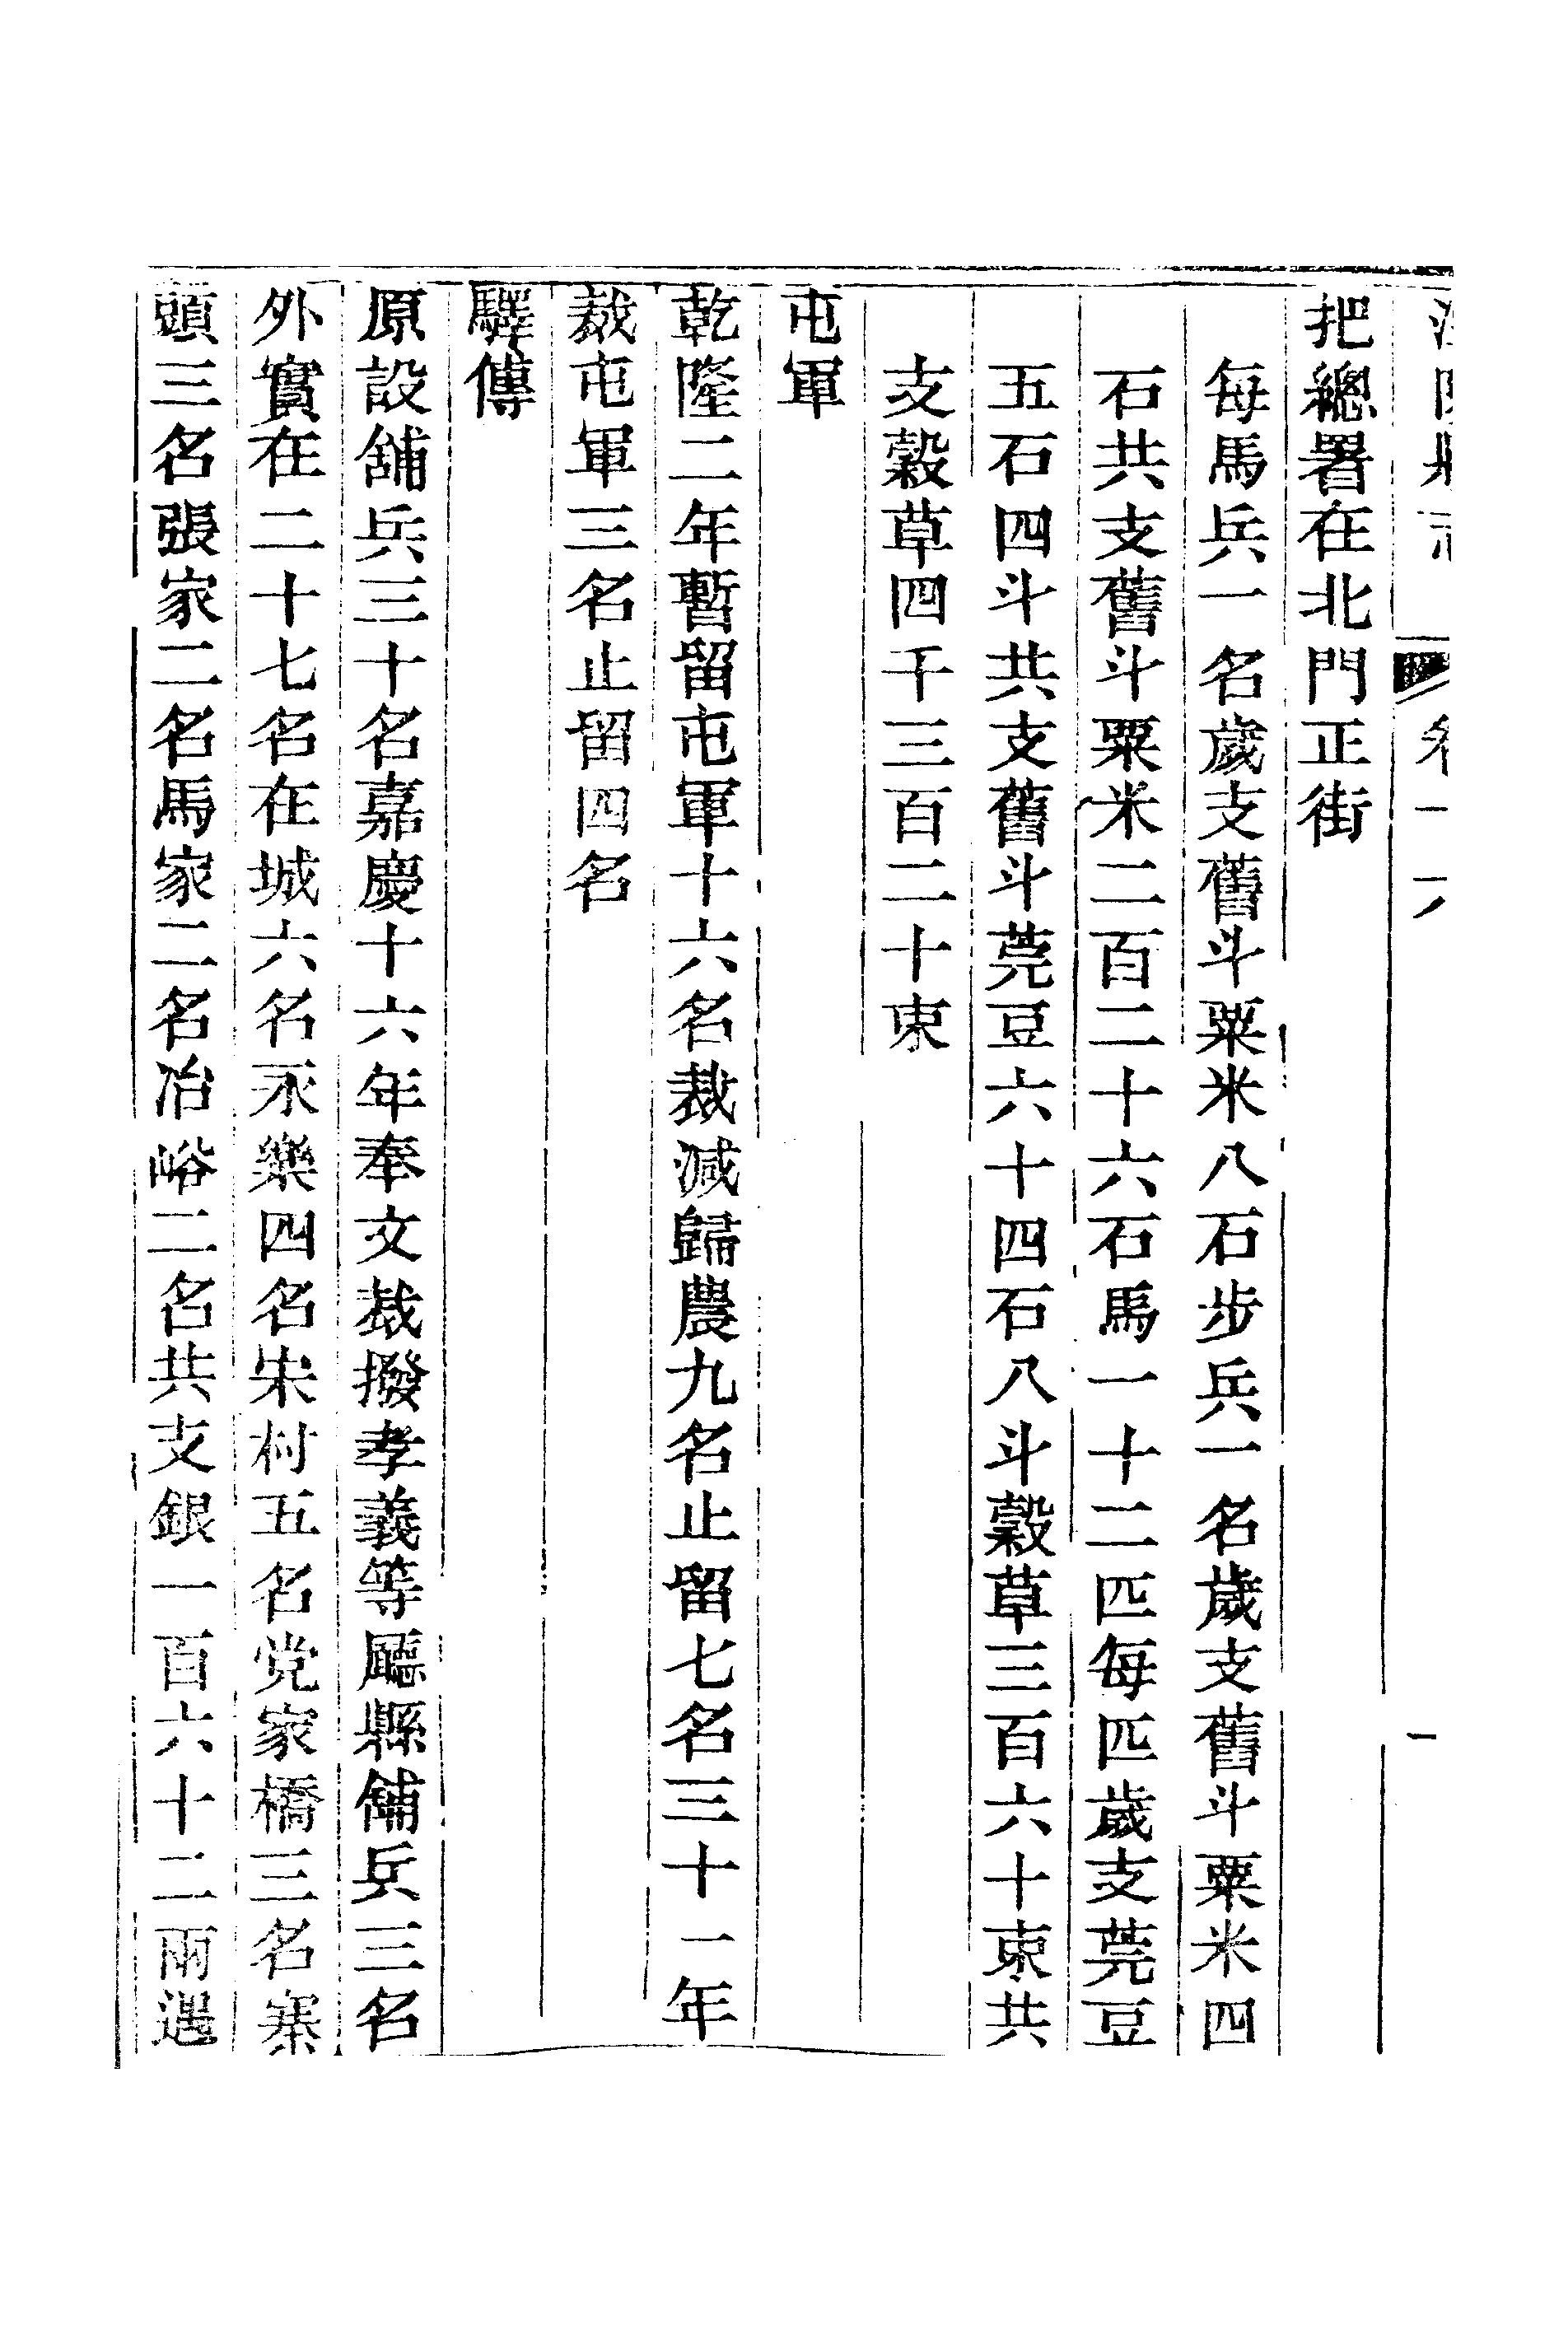 把總署在北門正街
每馬兵一名歲支舊斗粟米八石步兵一名歲支舊斗粟米四
石共支舊斗粟米二百二十六石馬一十二匹每匹歲支莞豆
五石四斗共支舊斗莞豆六十四石八斗穀草三百六十束共
支穀草四千三百二十束
屯軍
乾隆二年暫留屯軍十六名裁減歸農九名止留七名三十一年
裁屯軍三名止留四名
驛傳
原設舖兵三十名嘉慶十六年奉文裁撥孝義等廳縣舖兵三名
外實在二十七名在城六名永樂四名宋村五名党家橋三名寨
頭三名張家二名馬家二名冶峪二名共支銀一百六十二兩遇